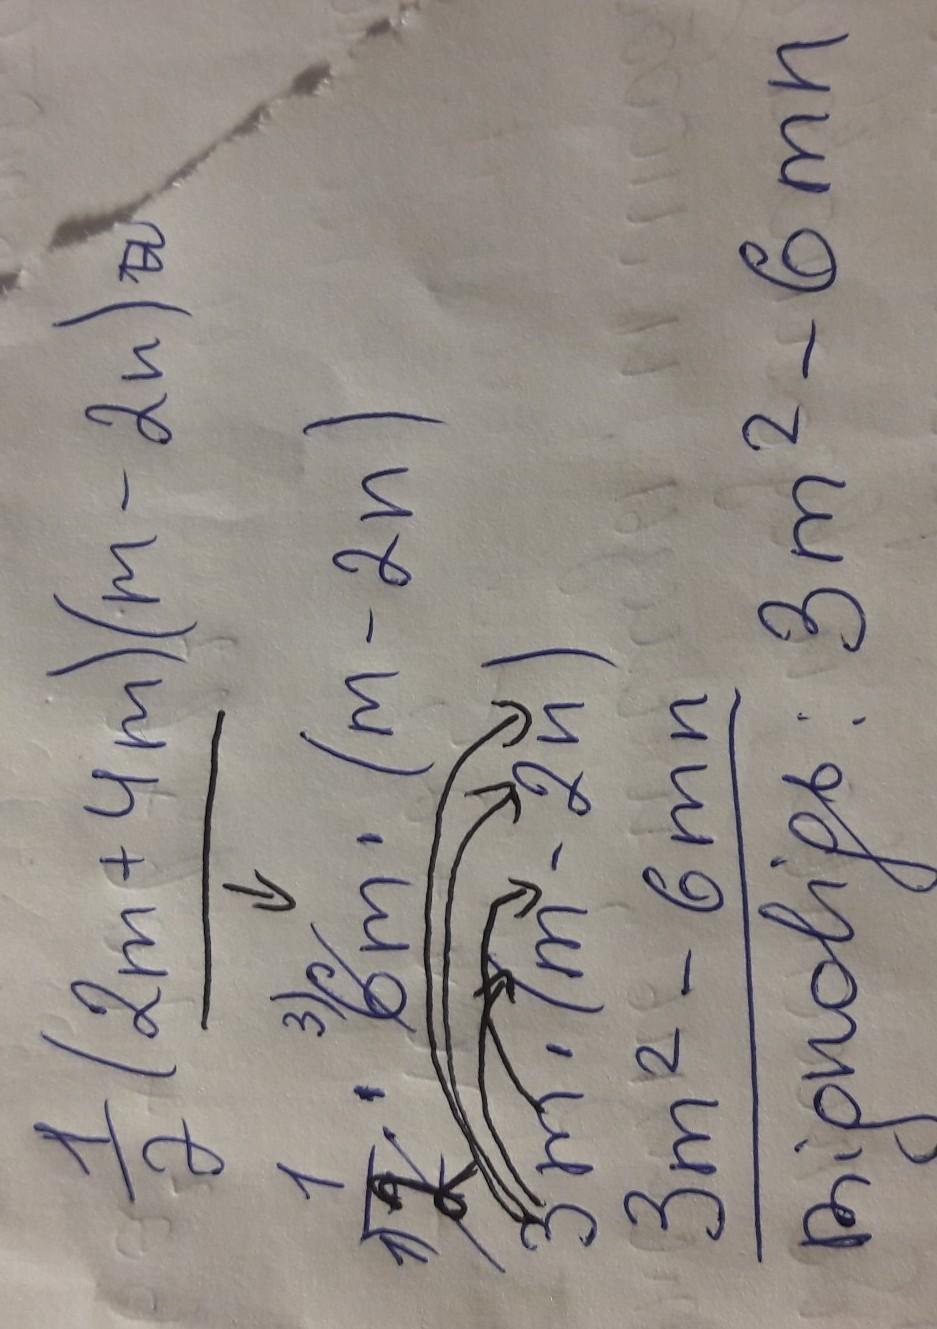 1/2 (2m + 4m)(m - 2n) =
1/2 · 6m · (m - 2n)
3m · (m - 2n)
3m² - 6mn
Відповідь: 3m² - 6mn